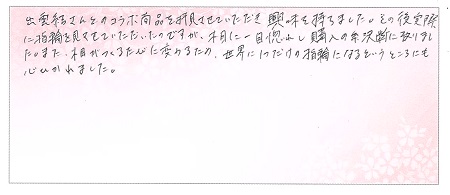 出雲結さんとのコラボ商品を拝見させていただき興味を持ちました。その後実際
に指輪を見させていただいたのですが、木目に一目惚れし購入の決断に至りまし
た。また、木目がつくるたびに変わるため、世界に1つだけの指輪になるというところにも
心ひかれました。